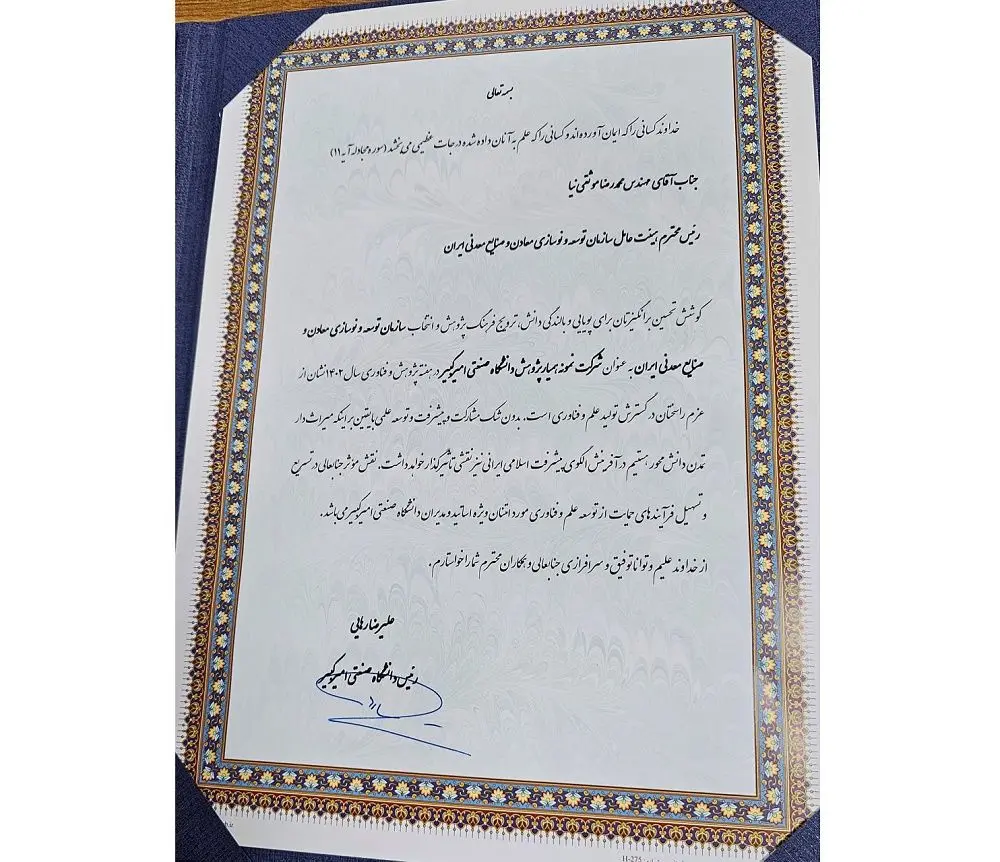 بسمه تعالی
خداوند کسانی را که ایمان آورده‌اند و کسانی را که علم به آنان داده شده درجات عظیمی می‌بخشد (سوره مجادله آیه ۱۱)
جناب آقای مهندس محمدرضا موثقی نیا
رئیس محترم هیئت عامل سازمان توسعه و نوسازی معادن و صنایع معدنی ایران
کوشش تحسین برانگیزتان برای پویایی و بالندگی دانش، ترویج فرهنگ پژوهش و انتخاب سازمان توسعه و نوسازی معادن و
صنایع معدنی ایران به عنوان شرکت نمونه همیار پژوهش دانشگاه صنعتی امیرکبیر در هفته پژوهش و فناوری سال ۱۴۰۲ نشان از
عزم راسختان در گسترش تولید علم و فناوری است. بدون شک مشارکت و پیشرفت و توسعه علمی با یقین بر اینکه میراث دار
تمدن دانش محور هستیم در آفرینش الگوی پیشرفت اسلامی ایرانی نیز نقشی تاثیرگذار خواهد داشت. نقش مؤثر جنابعالی در تسریع
و تسهیل فرآیندهای حمایت از توسعه علم و فناوری مورد امتنان ویژه اساتید و مدیران دانشگاه صنعتی امیرکبیر می‌باشد.
از خداوند علیم و توانا توفیق و سرافرازی جنابعالی و همکاران محترم شما را خواستارم.
علیرضا رهایی
رئیس دانشگاه صنعتی امیرکبیر
H-275